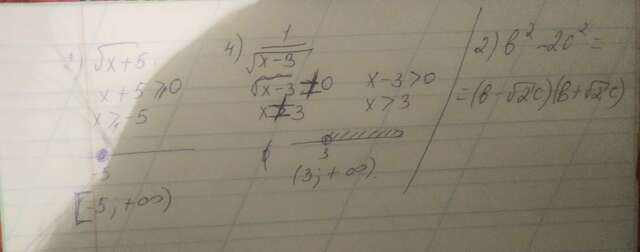 2) √x+5
x+5⩾0
x⩾-5
-5
[-5; +∞)
4) 1/√x-3
√x-3≠0
x≠3
x-3>0
x>3
3
(3; +∞).
2) b² - 2c² =
= (b-√2c)(b+√2c)